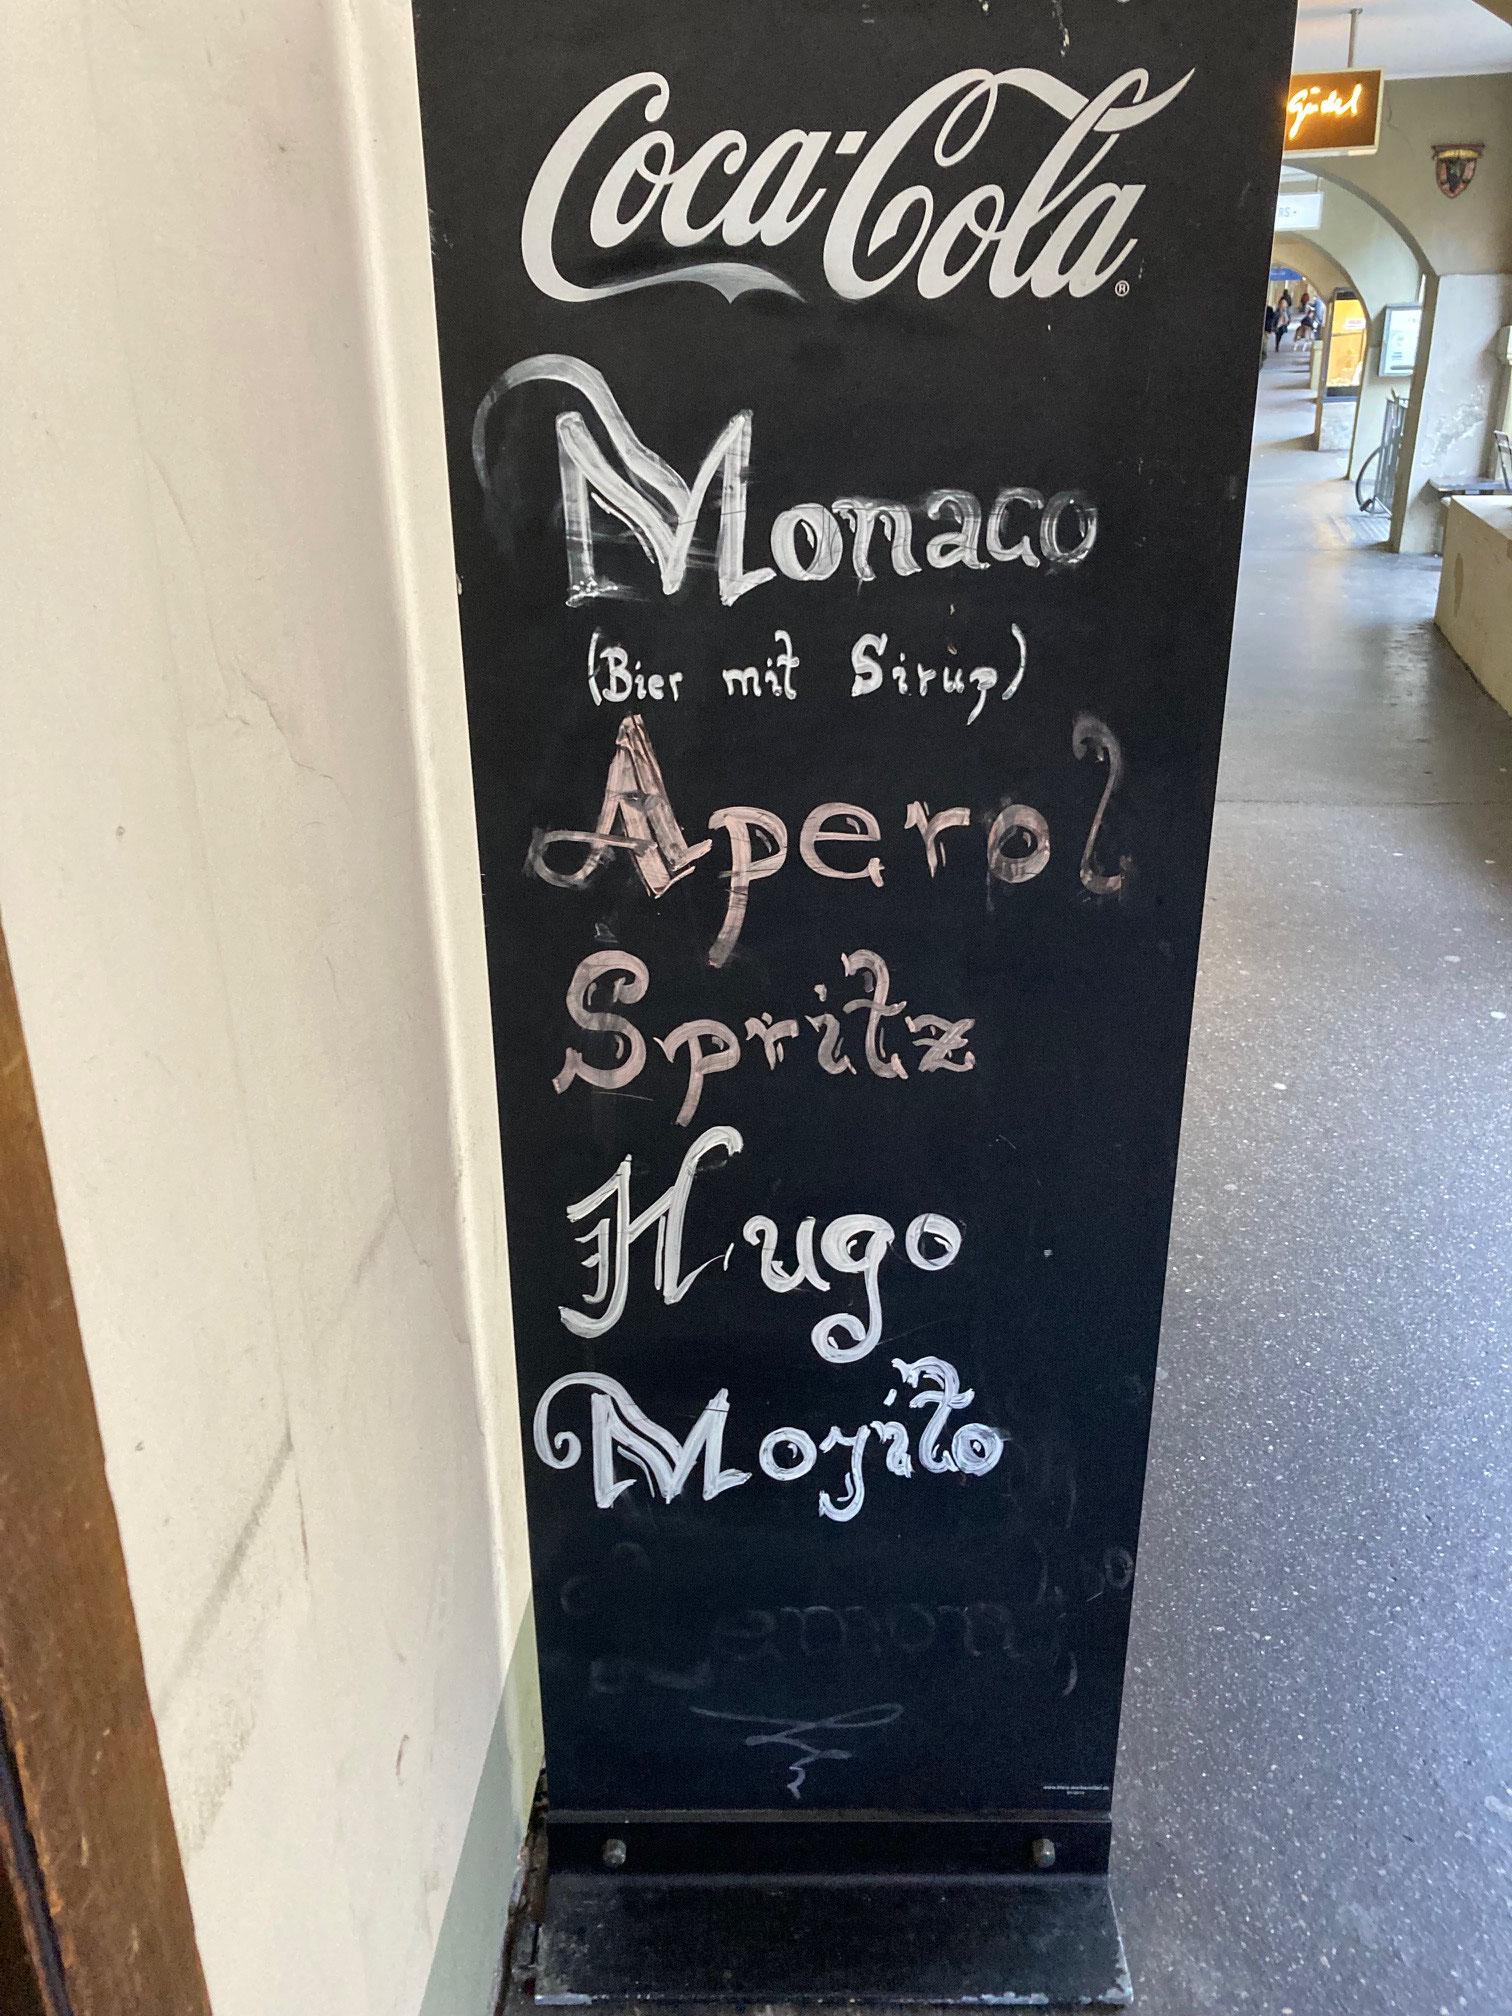 Coca-Cola
Monaco
(Bier mit Sirup)
Aperol
Spritz
Hugo
Mojito
Güdel